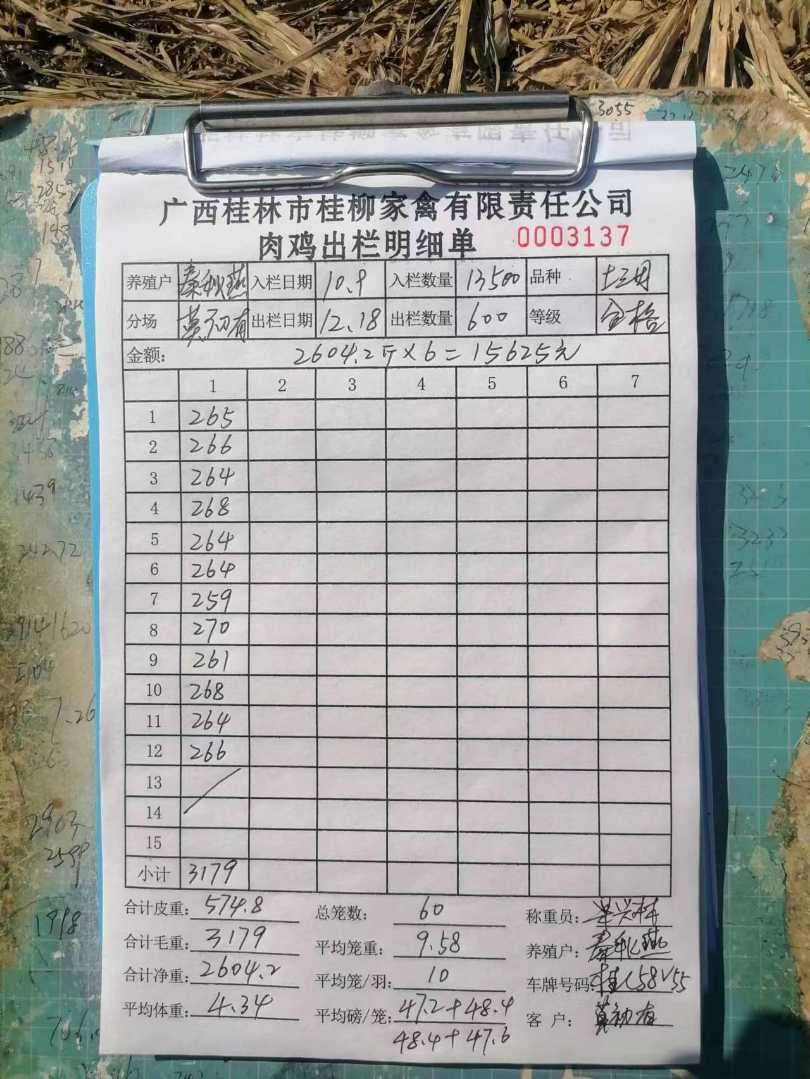 广西桂林市桂柳家禽有限责任公司
肉鸡出栏明细单 0003137
养殖户 秦秋燕 入栏日期 10.9 入栏数量 13500 品种
分场 莫初有 出栏日期 12.18 出栏数量 600 等级 合格
金额: 2604.2斤×6=15625元
1 2 3 4 5 6 7
1 265
2 266
3 264
4 268
5 264
6 264
7 259
8 270
9 261
10 268
11 264
12 266
13
14
15
小计 3179
合计皮重: 574.8 总笼数: 60 称重员:
合计毛重: 3179 平均笼重: 9.58 养殖户: 秦秋燕
合计净重: 2604.2 平均笼/羽: 10 车牌号码: 桂L58V55
平均体重: 4.34 平均磅/笼: 47.2+48.4 客 户: 莫初有
48.4+47.6